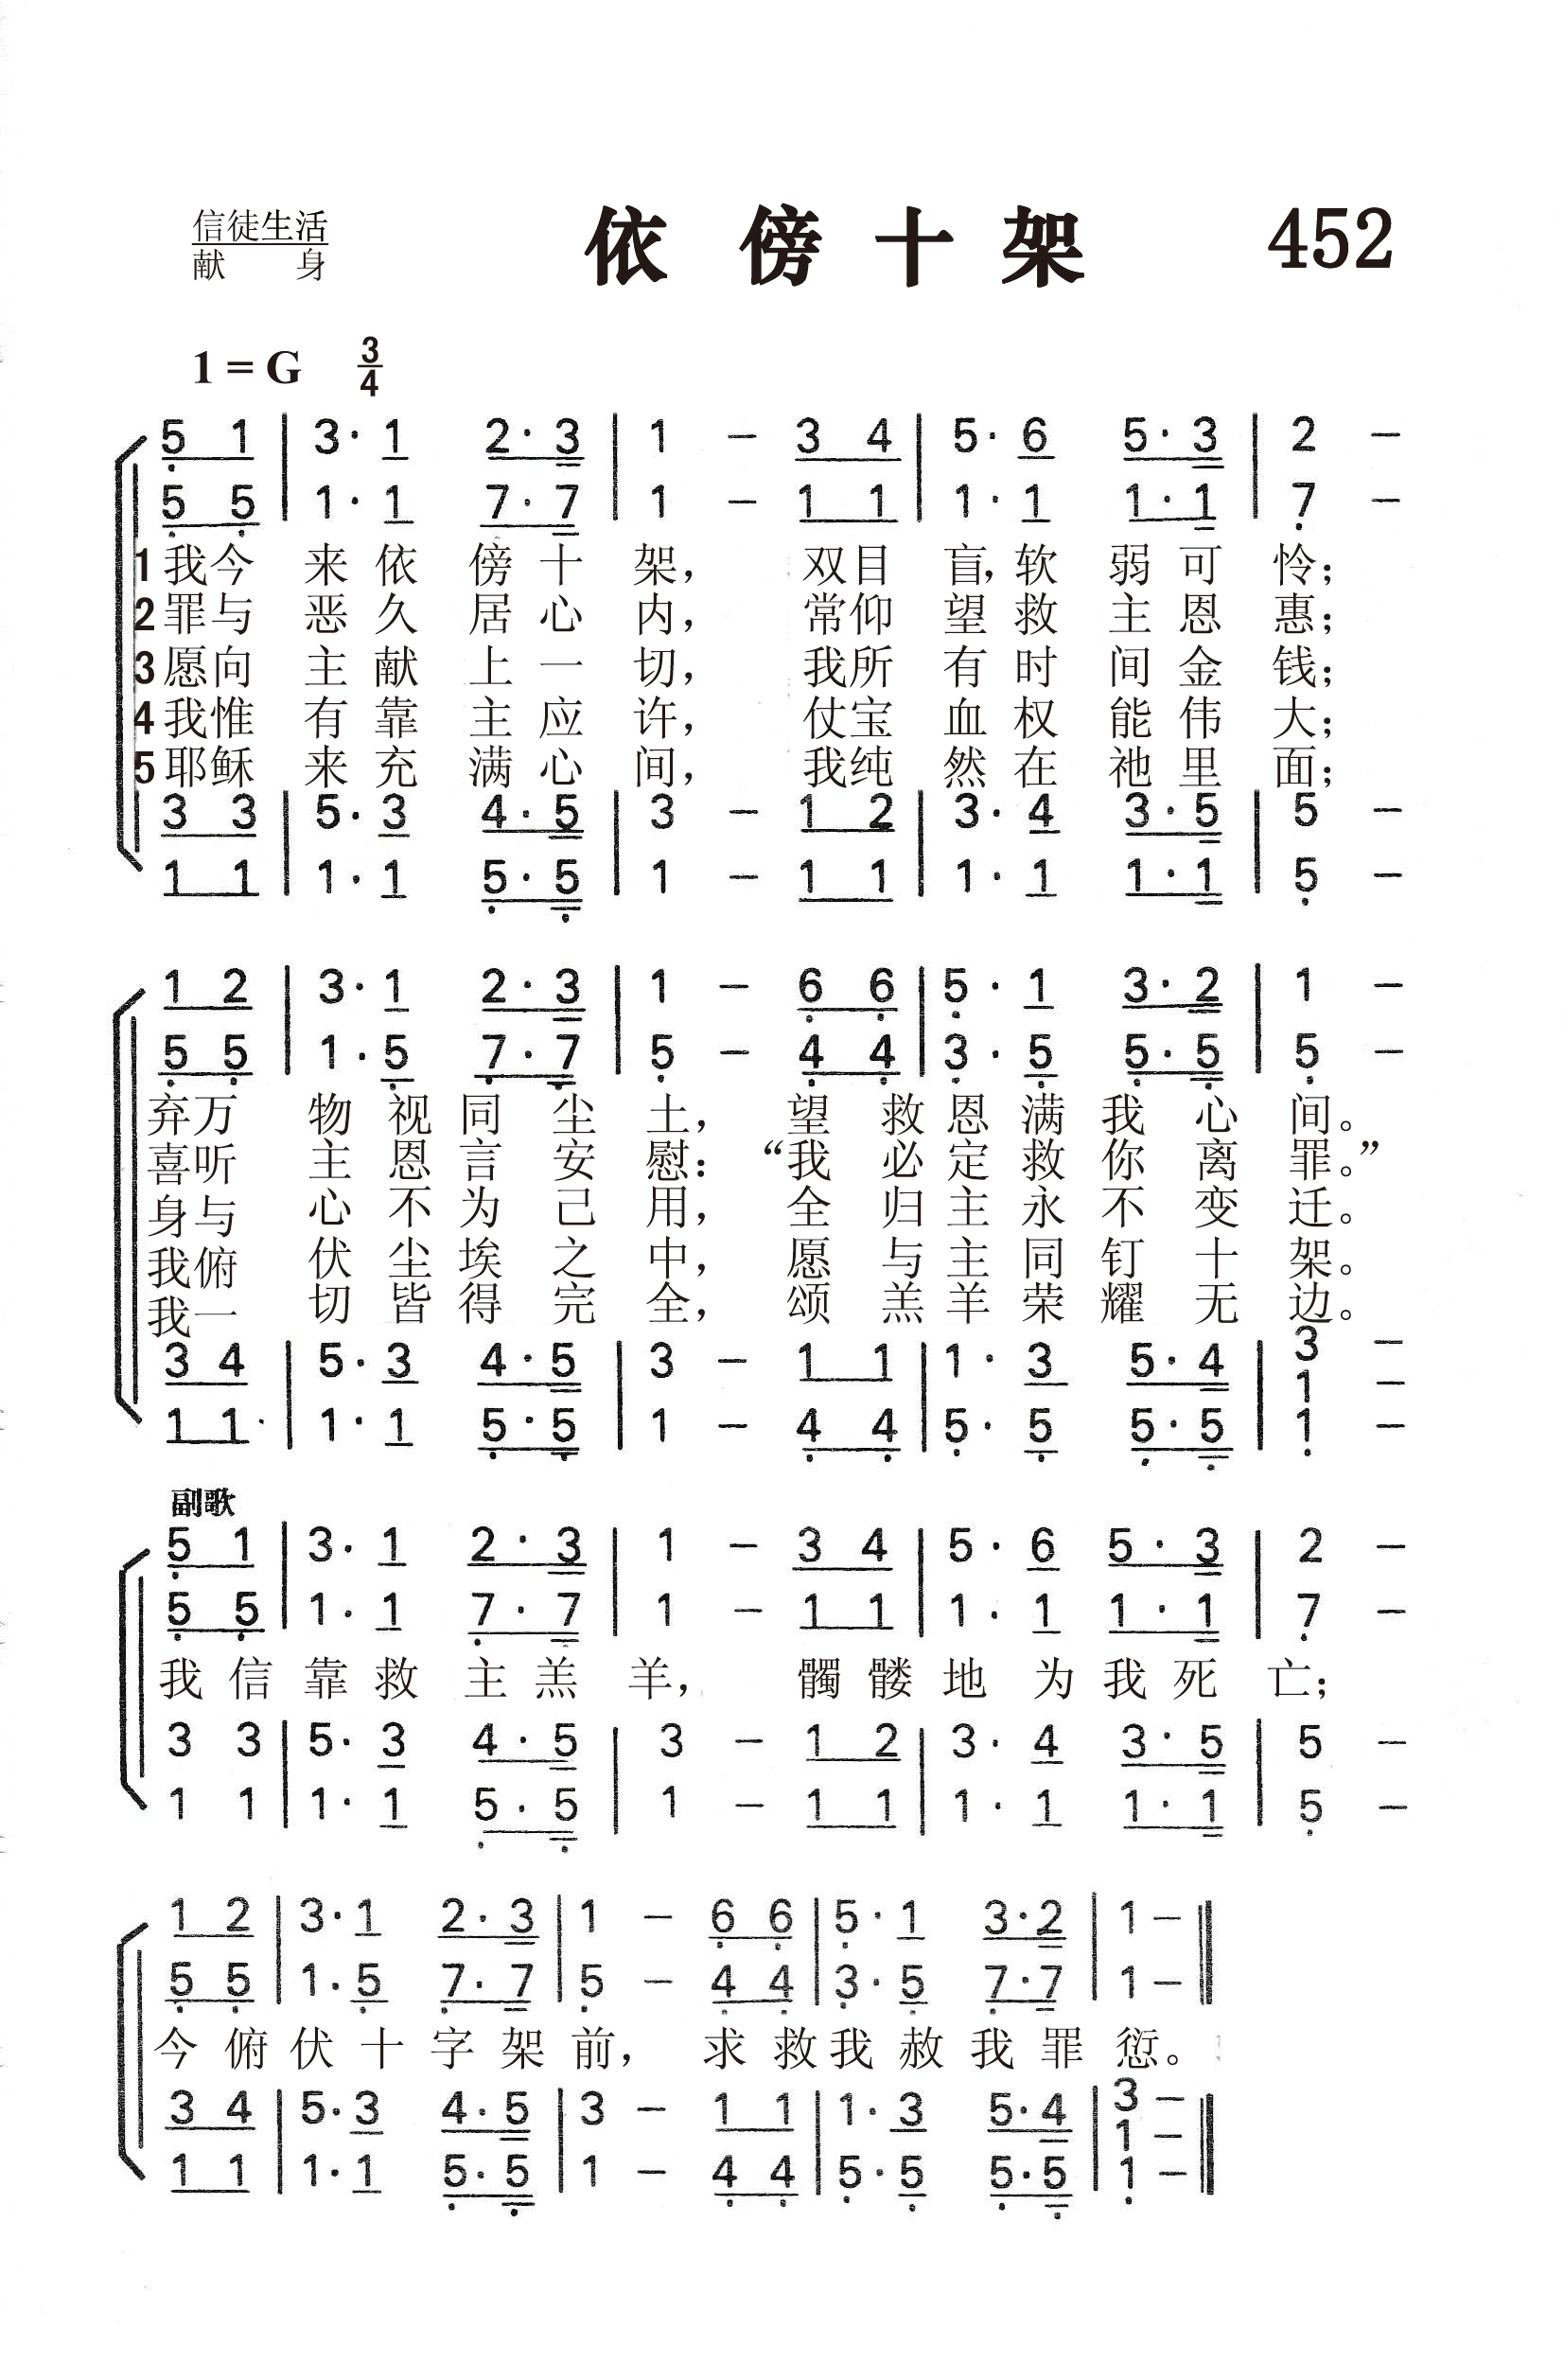 信徒生活
献 身
依傍十架
452
1 = G 3/4
5 1 | 3· 1 2·3 | 1 - 3 4 | 5· 6 5·3 | 2 -
5 5 | 1· 1 7·7 | 1 - 1 1 | 1· 1 1·1 | 7 -
1我今来依傍十架，双目盲，软弱可怜；
2罪与恶久居心内，常仰望救主恩惠；
3愿向主献上一切，我所有时间金钱；
4我惟有靠主应许，仗宝血权能伟大；
5耶稣来充满心间，我纯然在祂里面；
3 3 | 5· 3 4·5 | 3 - 1 2 | 3· 4 3·5 | 5 -
1 1 | 1· 1 5·5 | 1 - 1 1 | 1· 1 1·1 | 5 -
1 2 | 3· 1 2·3 | 1 - 6 6 | 5· 1 3·2 | 1 -
5 5 | 1· 5 7·7 | 5 - 4 4 | 3· 5 5·5 | 5 -
弃万物视同尘土，望救恩满我心间。
喜听主恩言安慰：“我必定救你离罪。”
身与心不为己用，全归主永不变迁。
我俯伏尘埃之中，愿与主同钉十架。
我一切皆得完全，颂羔羊荣耀无边。
3 4 | 5· 3 4·5 | 3 - 1 1 | 1· 3 5·4 | 3 -
1 -
1 1 | 1· 1 5·5 | 1 - 4 4 | 5· 5 5·5 | 1 -
副歌
5 1 | 3· 1 2·3 | 1 - 3 4 | 5· 6 5·3 | 2 -
5 5 | 1· 1 7·7 | 1 - 1 1 | 1· 1 1·1 | 7 -
我信靠救主羔羊，髑髅地为我死亡；
3 3 | 5· 3 4·5 | 3 - 1 2 | 3· 4 3·5 | 5 -
1 1 | 1· 1 5·5 | 1 - 1 1 | 1· 1 1·1 | 5 -
1 2 | 3· 1 2·3 | 1 - 6 6 | 5· 1 3·2 | 1 -
5 5 | 1· 5 7·7 | 5 - 4 4 | 3· 5 7·7 | 1 -
今俯伏十字架前，求救我赦我罪愆。
3 4 | 5· 3 4·5 | 3 - 1 1 | 1· 3 5·4 | 3 -
1 -
1 1 | 1· 1 5·5 | 1 - 4 4 | 5· 5 5·5 | 1 -